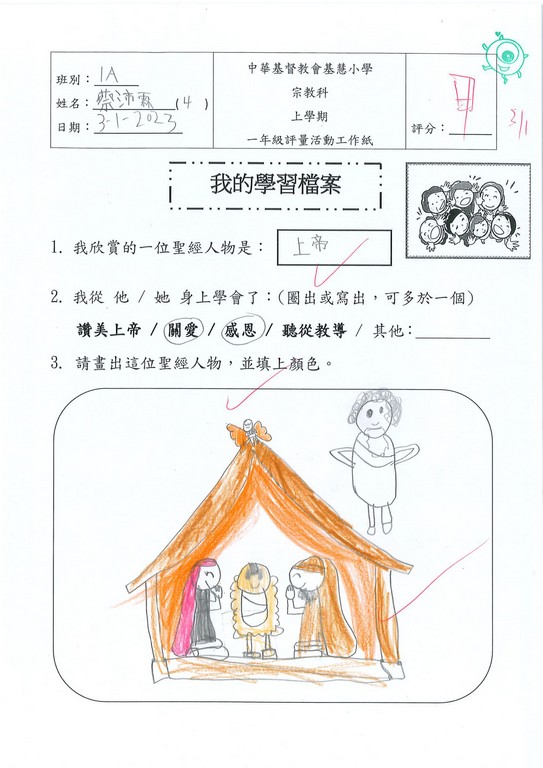 班別：1A
姓名：蔡沛霖(4)
日期：3-1-2023
中華基督教會基慧小學
宗教科
上學期
一年級評量活動工作紙
評分：甲
3/1
我的學習檔案
1. 我欣賞的一位聖經人物是：上帝
2. 我從 他 / 她 身上學會了：(圈出或寫出，可多於一個)
讚美上帝 / 關愛 / 感恩 / 聽從教導 / 其他：
3. 請畫出這位聖經人物，並填上顏色。